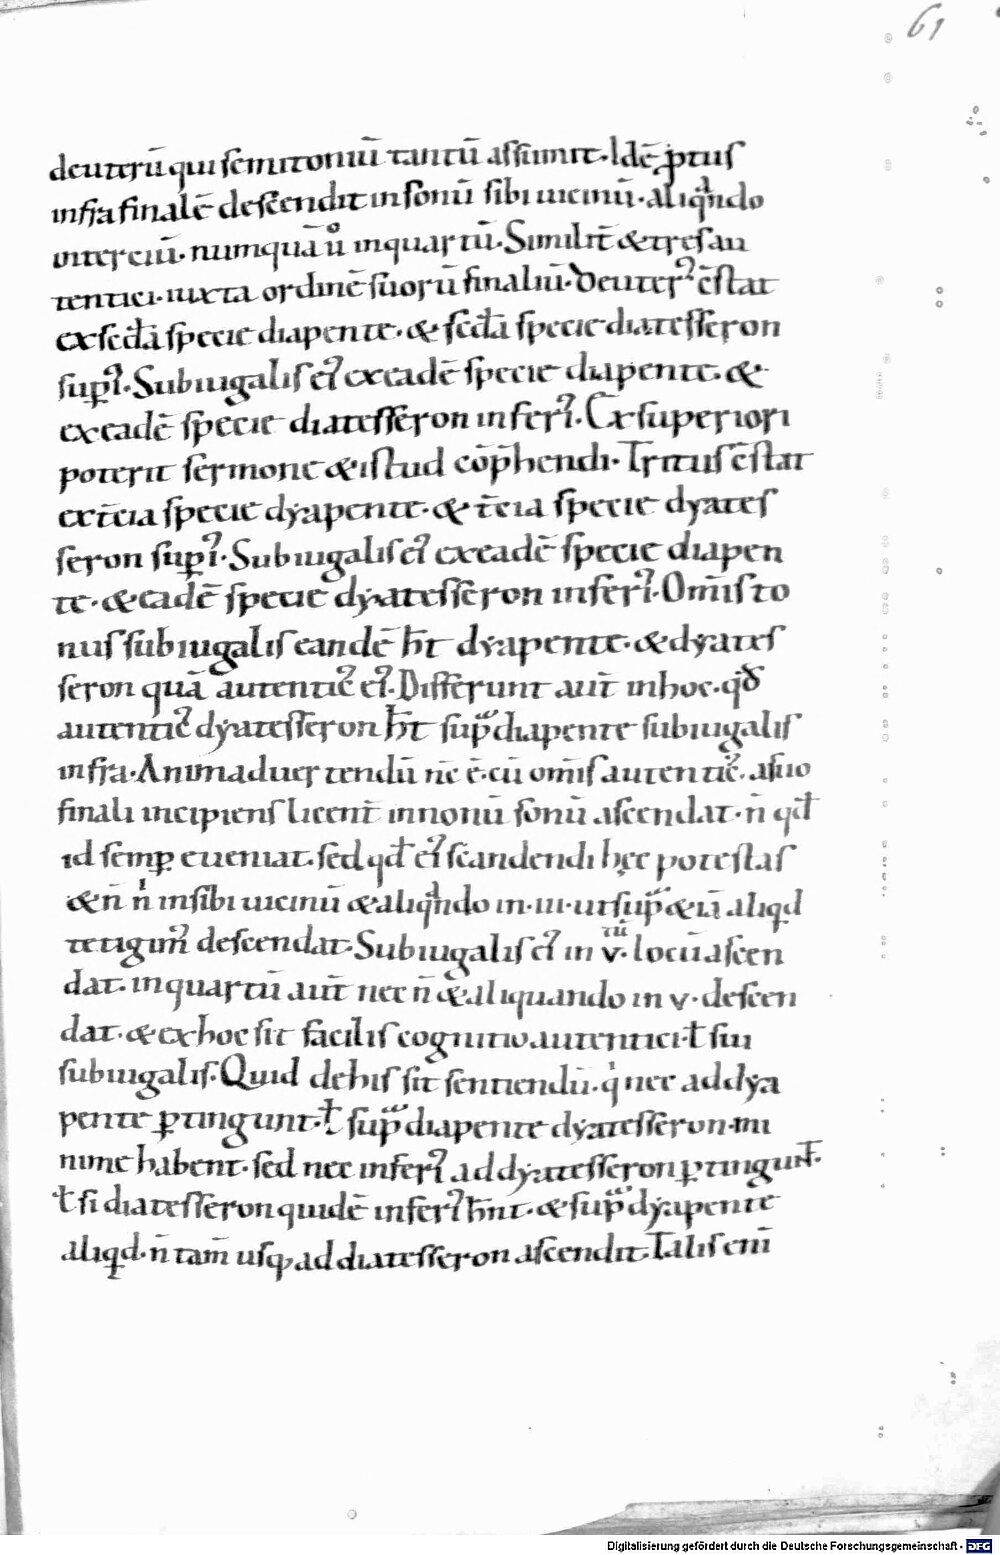 61
deuterū qui semitoniū tantū assumit. Idē ptus
infra finalē descendit in sonū sibi uicinū. aliqͣndo
in terciū. numquā ů in quartū. Similit̄ & tres au
tentici. iuxta ordinē suorū finaliū. Deuterꝰ ēstat
ex sc̄da specie diapente. & sc̄da specie diatesseron
supꝰi. Subiugalis eꝰ ex eadē specie diapente. &
ex eadē specie diatesseron inferꝰi. Ex superiori
poterit sermone & istud cōp̄hendi. Tritus ēstat
ex t̄cia specie dyapente. & t̄cia specie dyates
seron supꝰi. Subiugalis eꝰ ex eadē specie diapen
te. & eadē specie dyatesseron inferꝰi. Om̄is to
nus subiugalis eandē h̄t dyapente. & dyates
seron quā autenticꝰ eꝰ. Differunt aut̄ in hoc. qđ
autenticꝰ dyatesseron h̄t supͣ diapente subiugalis
infra. Animaduertendū nc̄ ē. cū om̄is autenticꝰ. a suo
finali incipiens licent̄ in nonū sonū ascendat. n̄ qđ
id semꝑ eueniat. sed qđ eꝰ scandendi hęc potestas
& n̄ nͥ in sibi uicinū & aliqͣndo in .iii. ut supͣ & iā aliqd
tetigimꝰ descendat. Subiugalis eꝰ in v.tū locū ascen
dat. in quartū aut̄ nec n̄ & aliquando in v. descen
dat. & ex hoc sit facilis cognitio autentici ł sui
subiugalis. Quid de his sit sentiendū. qͥ nec ad dya
pente ꝑtingunt. ł supͣ diapente dyatesseron mi
nime habent. sed nec inferꝰ ad dyatesseron ꝑtingunt̄.
ł si diatesseron quidē inferꝰ hn̄t. & supͣ dyapente
aliqd. n̄ tam̄ usq; ad diatesseron ascendit. Talis eni̅
Digitalisierung gefördert durch die Deutsche Forschungsgemeinschaft - DFG